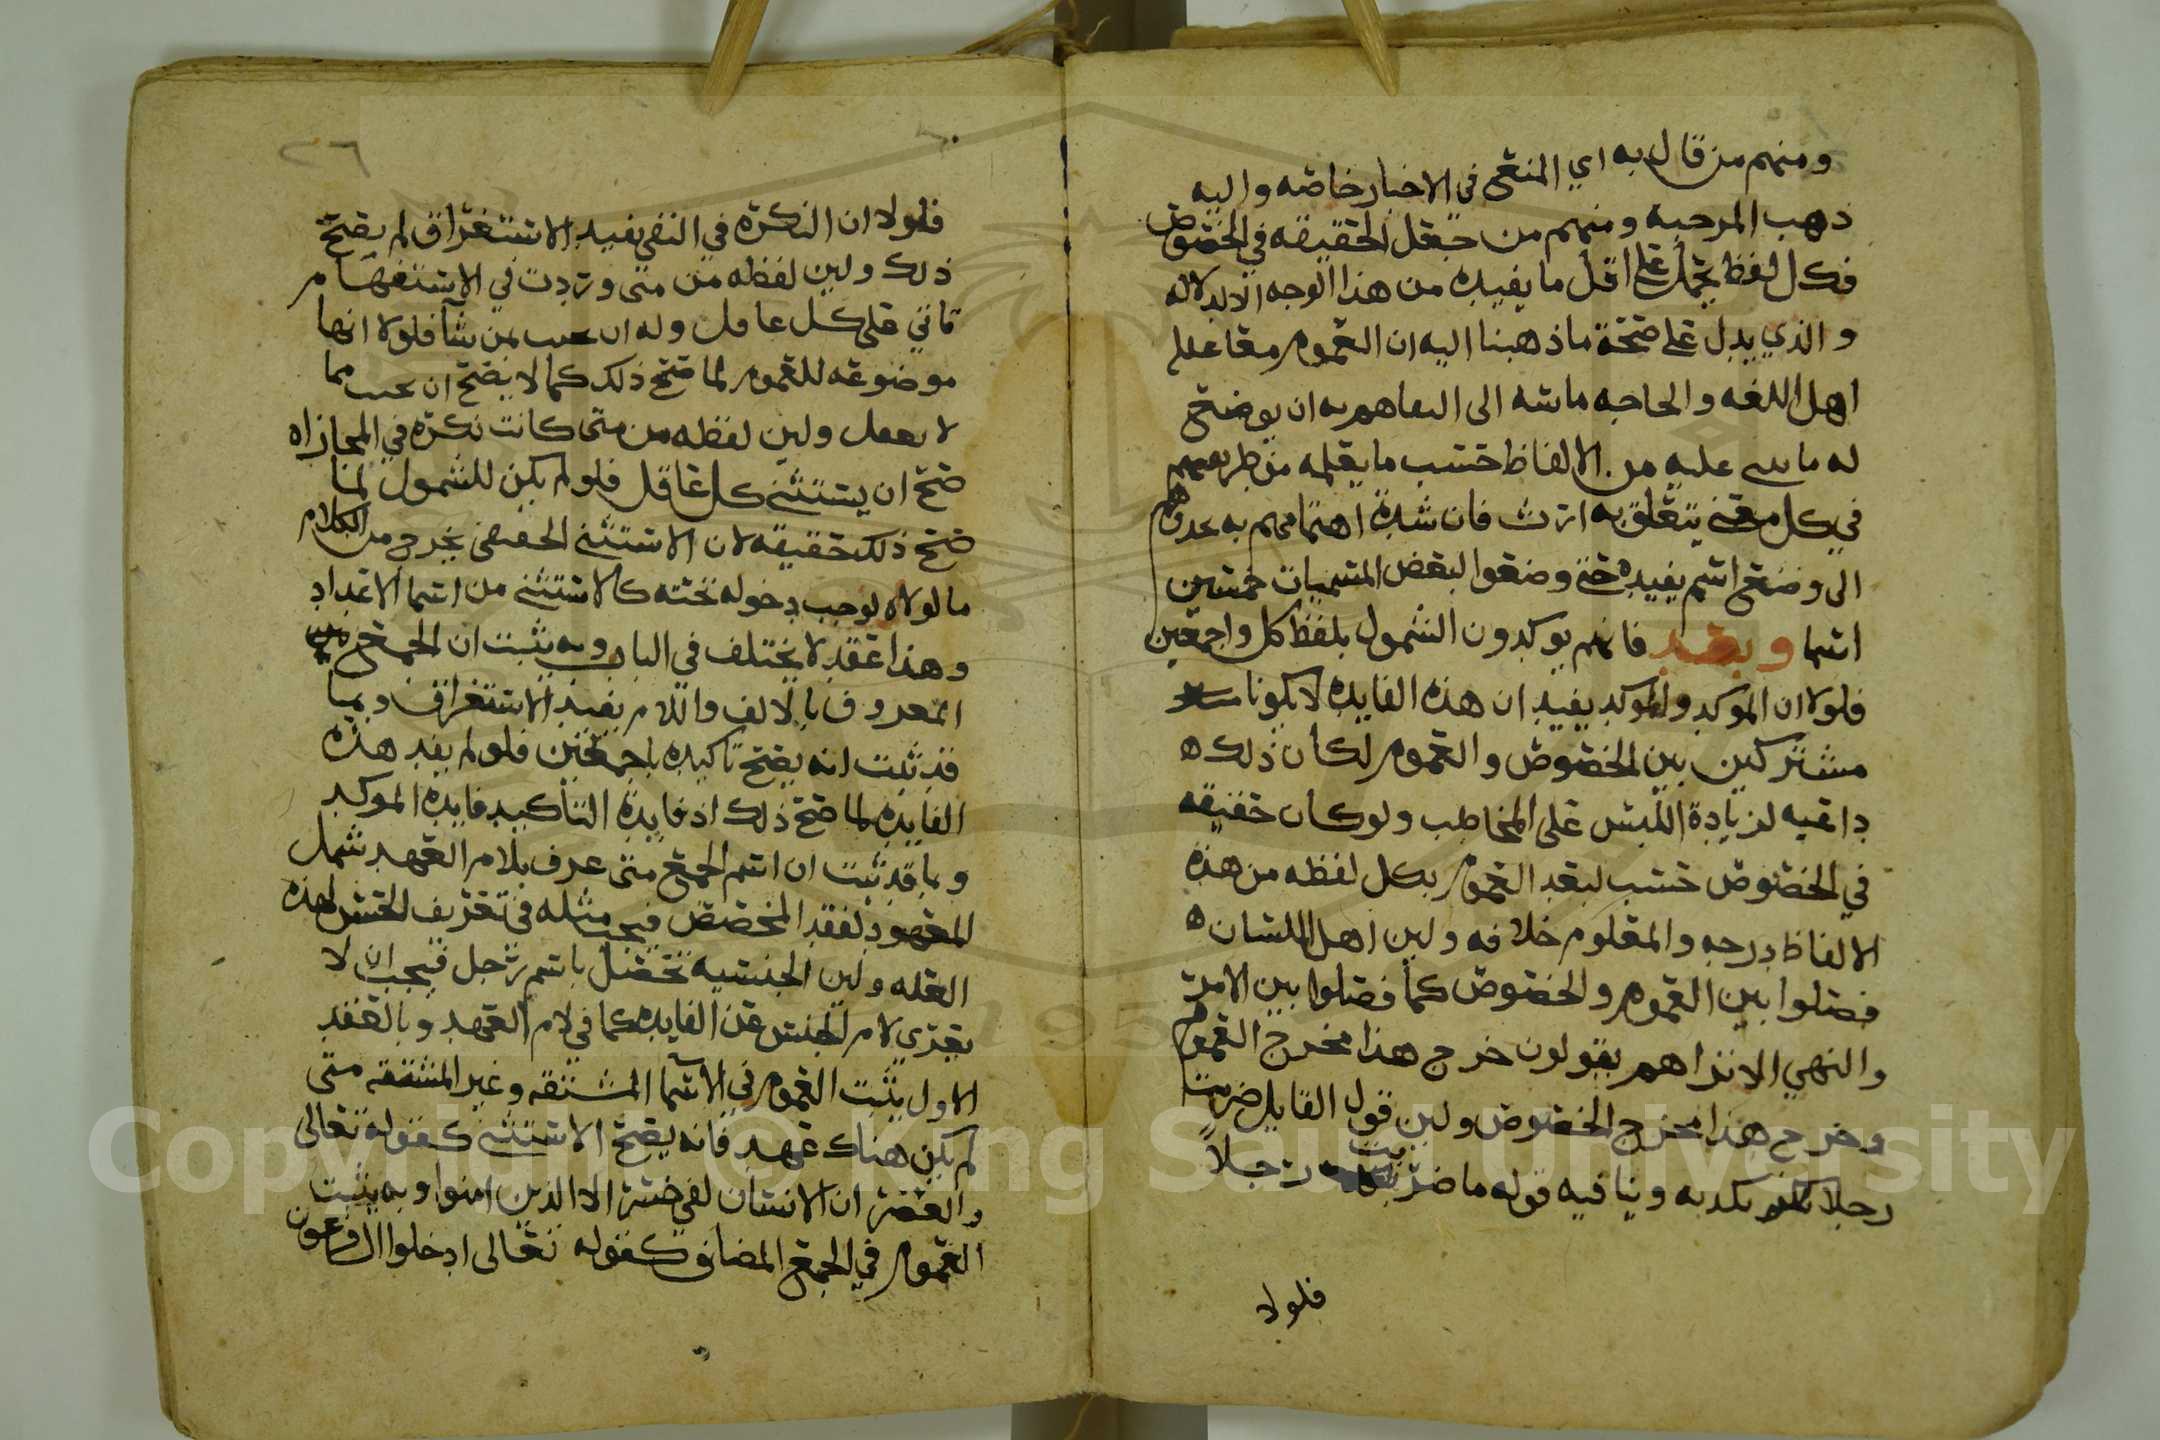 ومنهم من قال به اي المنع في الاخبار خاصه واليه
ذهب المرجيه ومنهم من جعل الحقيقه في الخصوص
فكل لفظ يحمل على اقل ما يفيده من هذا الوجه الا لدلاله
والذي يدل على صحة ما ذهبنا اليه ان العموم معنا عقله
اهل اللغه والحاجه ماسه الى التفاهم به ان يوضع
له ما يبني عليه من الالفاظ حسب ما يعلمه من طريقتهم
في كل معنى يتعلق به ارث فان شدة اهتمامهم به عدهم
الى وضع اسم يفيده حتى وضعوا لبعض المسميات خمسين
اسما وبعد فانهم يوكدون الشمول بلفظ كل واجمعين
فلولا ان الموكد والموكد يفيد ان هذه الفايده لا يكونا
مشتركين بين الخصوص والعموم لكان ذلك ه
داعيه لزيادة اللبس على المخاطب ولو كان حقيقه
في الخصوص حسب لبعد العموم بكل لفظه من هذه
الالفاظ درجه والمعلوم خلافه ولين اهل اللسان ه
فصلوا بين العموم والخصوص كما فصلوا بين الامر
والنهي الا تراهم يقولون خرج هذا مخرج العموم
وخرج هذا مخرج الخصوص ولين قول القايل ضربت
رجلا يكدبه وينافيه قوله ما ضربت رجلاً
فلولا
٢٦
فلولا ان النكره في النفي يفيد الاستغراق لم يصح
ذلك ولين لفظه من متى وردت في الاستفهام
تاتي على كل عاقل وله ان يجيب بمن شآ فلولا انها
موضوعه للعموم لما صح ذلك كما لا يصح ان يجيب بما
لا يعقل ولين لفظه من متى كانت نكره في المجازاه
صح ان يستثنى كل عاقل فلو لم يكن للشمول لما
صح ذلك حقيقه لان الاستثنى الحقيقي يخرج من الكلام
ما لولاه لوجب دخوله تحته كالاستثنى من اسما الاعداد
وهذا عقد لا يختلف في الباب وبه يثبت ان الجمع
المعروف بالالف واللام يفيد الاستغراق وبما
قد ثبت انه يصح تاكيده باجمعين فلو لم يفد هذه
الفايده لما صح ذلك اذ فايدة التاكيد فايده الموكد
وبما قد ثبت ان اسم الجمع متى عرف بلام العهد شمل
المعهود لفقد المخصص فيجب مثله في تعريف الجنس لهذه
العله ولين الجنسيه تحصل باسم رجل فيجب ان لا
يعرى لام الجنس عن الفايده كما في لام العهد وبالعقد
الاول يثبت العموم في الآسما المشتقه وغير المشتقه متى
لم يكن هناك عهد فانه يصح الاستثنى كقوله تعالى
والعصر ان الانسان لفي خسر الا الذين امنوا وبه يثبت
العموم في الجمع المضاف كقوله تعالى ادخلوا ال فرعون